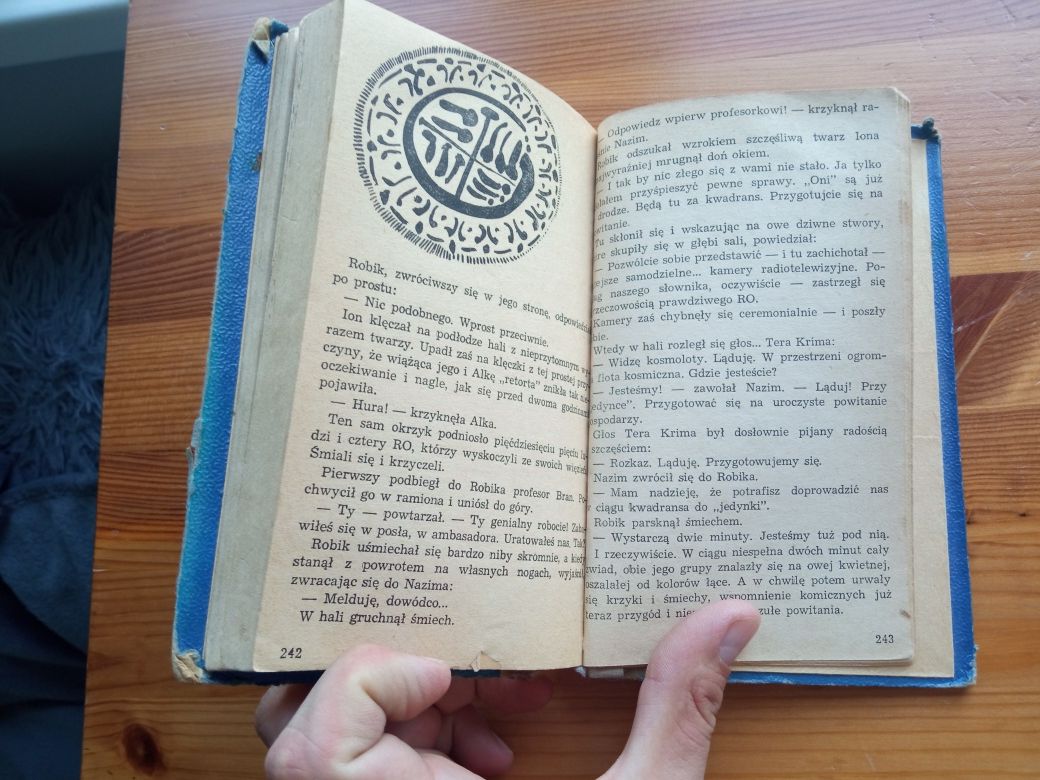 Robik, zwróciwszy się w jego stronę,
po prostu:
— Nic podobnego. Wprost przeciwnie.
Ion klęczał na podłodze hali z nieprzytomnym
razem twarzy. Upadł zaś na klęczki z tej prostej
czyny, że wiążąca jego i Alkę „retorta" znikła tak
oczekiwanie i nagle, jak się przed dwoma godzinami
pojawiła.
— Hura! — krzyknęła Alka.
Ten sam okrzyk podniosło pięćdziesięciu pięciu
dzi i cztery RO, którzy wyskoczyli ze swoich
Śmiali się i krzyczeli.
Pierwszy podbiegł do Robika profesor Bran.
chwycił go w ramiona i uniósł do góry.
— Ty — powtarzał. — Ty genialny robocie!
wiłeś się w posła, w ambasadora. Uratowałeś nas.
Robik uśmiechał się bardzo niby skromnie, a
stanął z powrotem na własnych nogach,
zwracając się do Nazima:
— Melduję, dowódco...
W hali gruchnął śmiech.
242
Odpowiedz wpierw profesorkowi! — krzyknął ra-
Nazim.
Robik odszukał wzrokiem szczęśliwą twarz Iona
mrugnął doń okiem.
I tak by nic złego się z wami nie stało. Ja tylko
przyśpieszyć pewne sprawy. „Oni" są już
drodze. Będą tu za kwadrans. Przygotujcie się na
Tu skłonił się i wskazując na owe dziwne stwory,
skupiły się w głębi sali, powiedział:
— Pozwólcie sobie przedstawić — i tu zachichotał —
samodzielne... kamery radiotelewizyjne. Po-
naszego słownika, oczywiście — zastrzegł się
rzeczowością prawdziwego RO.
Kamery zaś chybnęły się ceremonialnie — i poszły
Wtedy w hali rozległ się głos... Tera Krima:
— Widzę kosmoloty. Ląduję. W przestrzeni ogrom-
flota kosmiczna. Gdzie jesteście?
— Jesteśmy! — zawołał Nazim. — Ląduj! Przy
Przygotować się na uroczyste powitanie
Głos Tera Krima był dosłownie pijany radością
szczęściem:
— Rozkaz. Ląduję. Przygotowujemy się.
Nazim zwrócił się do Robika.
— Mam nadzieję, że potrafisz doprowadzić nas
w ciągu kwadransa do „jedynki".
Robik parsknął śmiechem.
— Wystarczą dwie minuty. Jesteśmy tuż pod nią.
I rzeczywiście. W ciągu niespełna dwóch minut cały
zwiad, obie jego grupy znalazły się na owej kwietnej,
oszalałej od kolorów łące. A w chwilę potem urwały
się krzyki i śmiechy, wspomnienie komicznych już
teraz przygód i powitania.
243